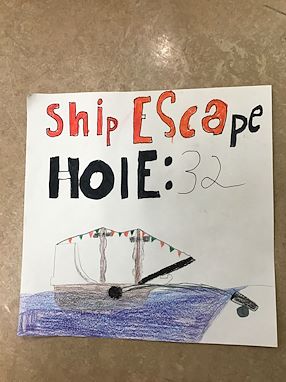 Ship ESCape
HOlE: 32